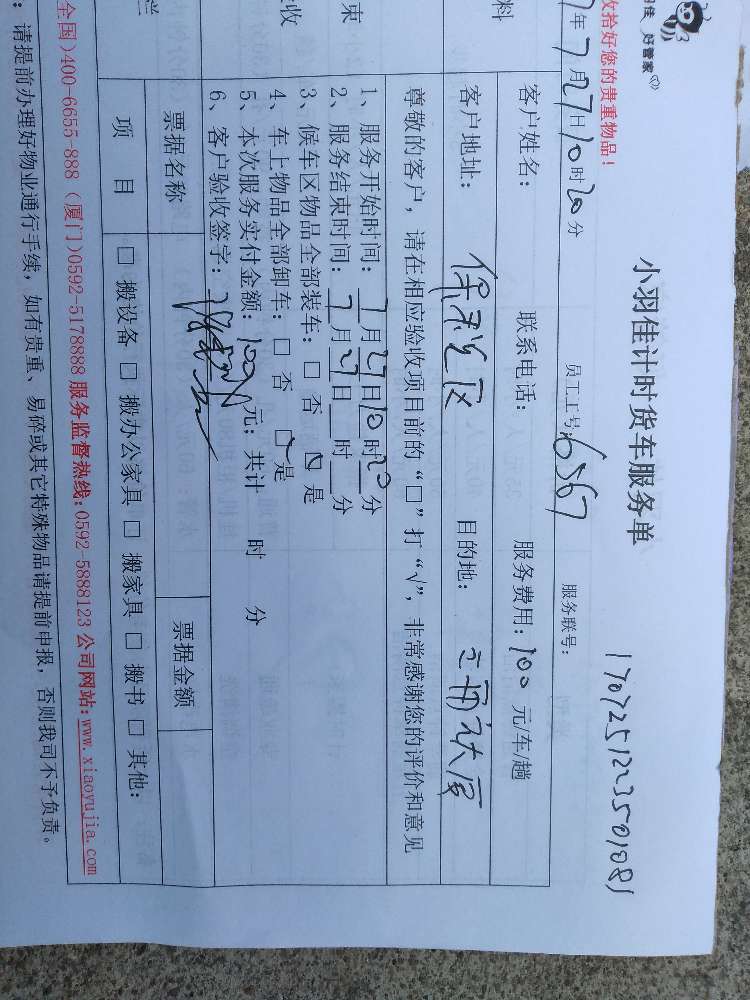 羽佳 好管家
收拾好您的贵重物品!
小羽佳计时货车服务单
170725122350108
年7月27日10时20分 员工工号:6567 服务联号:
料
客户姓名: 联系电话: 服务费用:100元/车/趟
客户地址: 目的地:
尊敬的客户，请在相应验收项目前的“□”打“√”，非常感谢您的评价和意见
束
收
1、服务开始时间:7月27日10时20分
2、服务结束时间:7月27日 时 分
3、候车区物品全部装车: □ 否 □ 是
4、车上物品全部卸车: □ 否 □ 是
5、本次服务实付金额:100元; 共计 时 分
6、客户验收签字:
栏
票据名称 票据金额
项 目 □ 搬设备 □ 搬办公家具 □ 搬家具 □ 搬书 □ 其他:
全国)400-6655-888 (厦门)0592-5178888 服务监督热线:0592-5888123 公司网站:www.xiaoyujia.com
: 请提前办理好物业通行手续，如有贵重、易碎或其它特殊物品请提前申报，否则我司不予负责。